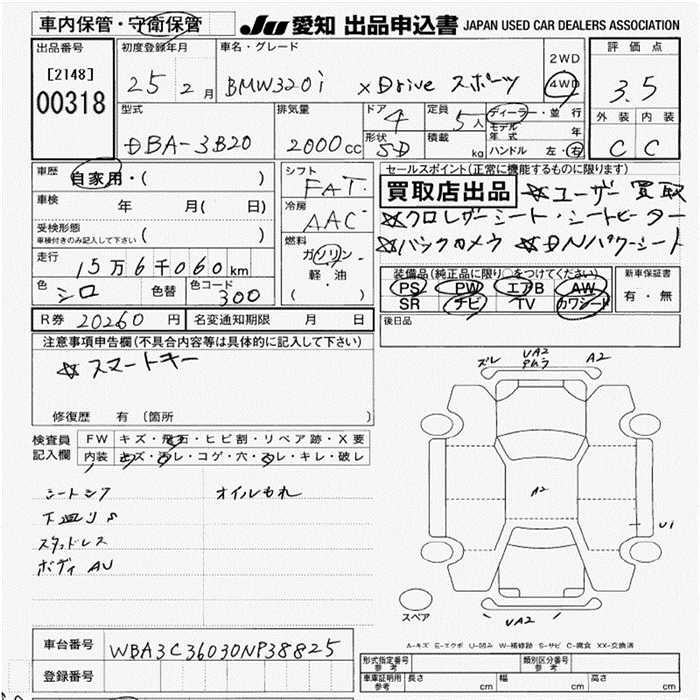 車内保管・守衛保管
JU 愛知 出品申込書 JAPAN USED CAR DEALERS ASSOCIATION
出品番号
[2148]
00318
初度登録年月
25 2月
車名・グレード
BMW320i xDrive スポーツ
2WD
4WD
評価点
3.5
外装 内装
C C
型式
DBA-3B20
排気量
2000cc
ドア 4
形状 SD
定員 5人
積載 kg
ディーラー・並行
モデル年式 年
ハンドル 左・右
車歴 自家用・( )
車検 年 月( 日)
受検形態
車検付きのみ記入して下さい ( )
走行 15万6千060km
色 シロ 色替 色コード 300
シフト
FAT
冷房
AAC
燃料
ガソリン
軽・油
( )
セールスポイント(正常に機能するものに限ります)
買取店出品 ☆ユーザー買取
☆クロレザーシート・シートヒーター
☆バックカメラ ☆DNパワーシート
装備品(純正品に限り○をつけてください)
PS PW エアB AW
SR ナビ TV カワシート
新車保証書
有・無
R券 20260円 名変通知期限 月 日
後日品
注意事項申告欄(不具合内容等は具体的に記入して下さい)
☆スマートキー
修復歴 有 〔箇所 〕
検査員
記入欄
FW キズ・飛石・ヒビ割・リペア跡・X要
内装 キズ・汚レ・コゲ・穴・スレ・キレ・破レ
シートシワ オイルもれ
下廻りS
スタッドレス
ボディAU
ズレ UA2 A2
タムラ
A2
U1
UA2
スペア
A-キズ E-エクボ U-凹み W-補修跡 S-サビ C-腐食 XX-交換済
車台番号 WBA3C36030NP38825
登録番号
形式指定番号
参考
類別区分番号
参考
車庫証明用
参考
長さ cm 幅 cm 高さ cm